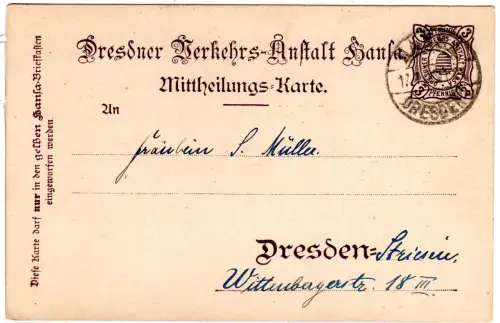 Dresdner Verkehrs-Anstalt Hansa.
Mittheilungs-Karte.
An
Fräulein S. Müller.
Dresden-Striesen,
Wittenbergerstr. 18 III
Diese Karte darf nur in den gelben Hansa-Briefkasten
eingeworfen werden.
3 3
3
PFENNIG
DRESDEN